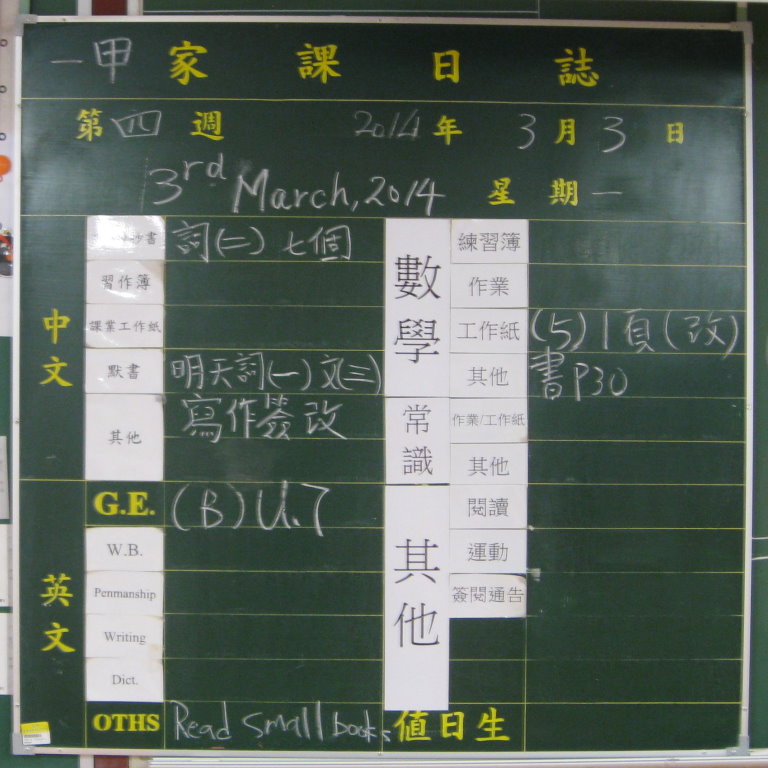 一甲 家 課 日 誌
第四週 2014年 3月3日
3rd March, 2014 星期一
中文
抄書 詞(二) 七個
習作簿
課業工作紙
默書 明天詞(一) 文(三)
其他 寫作簽改
英文
G.E. (B) U.7
W.B.
Penmanship
Writing
Dict.
OTHS Read small books
數學
練習簿
作業
工作紙 (5) 1頁(改)
其他 書P30
常識
作業/工作紙
其他
其他
閱讀
運動
簽閱通告
值日生